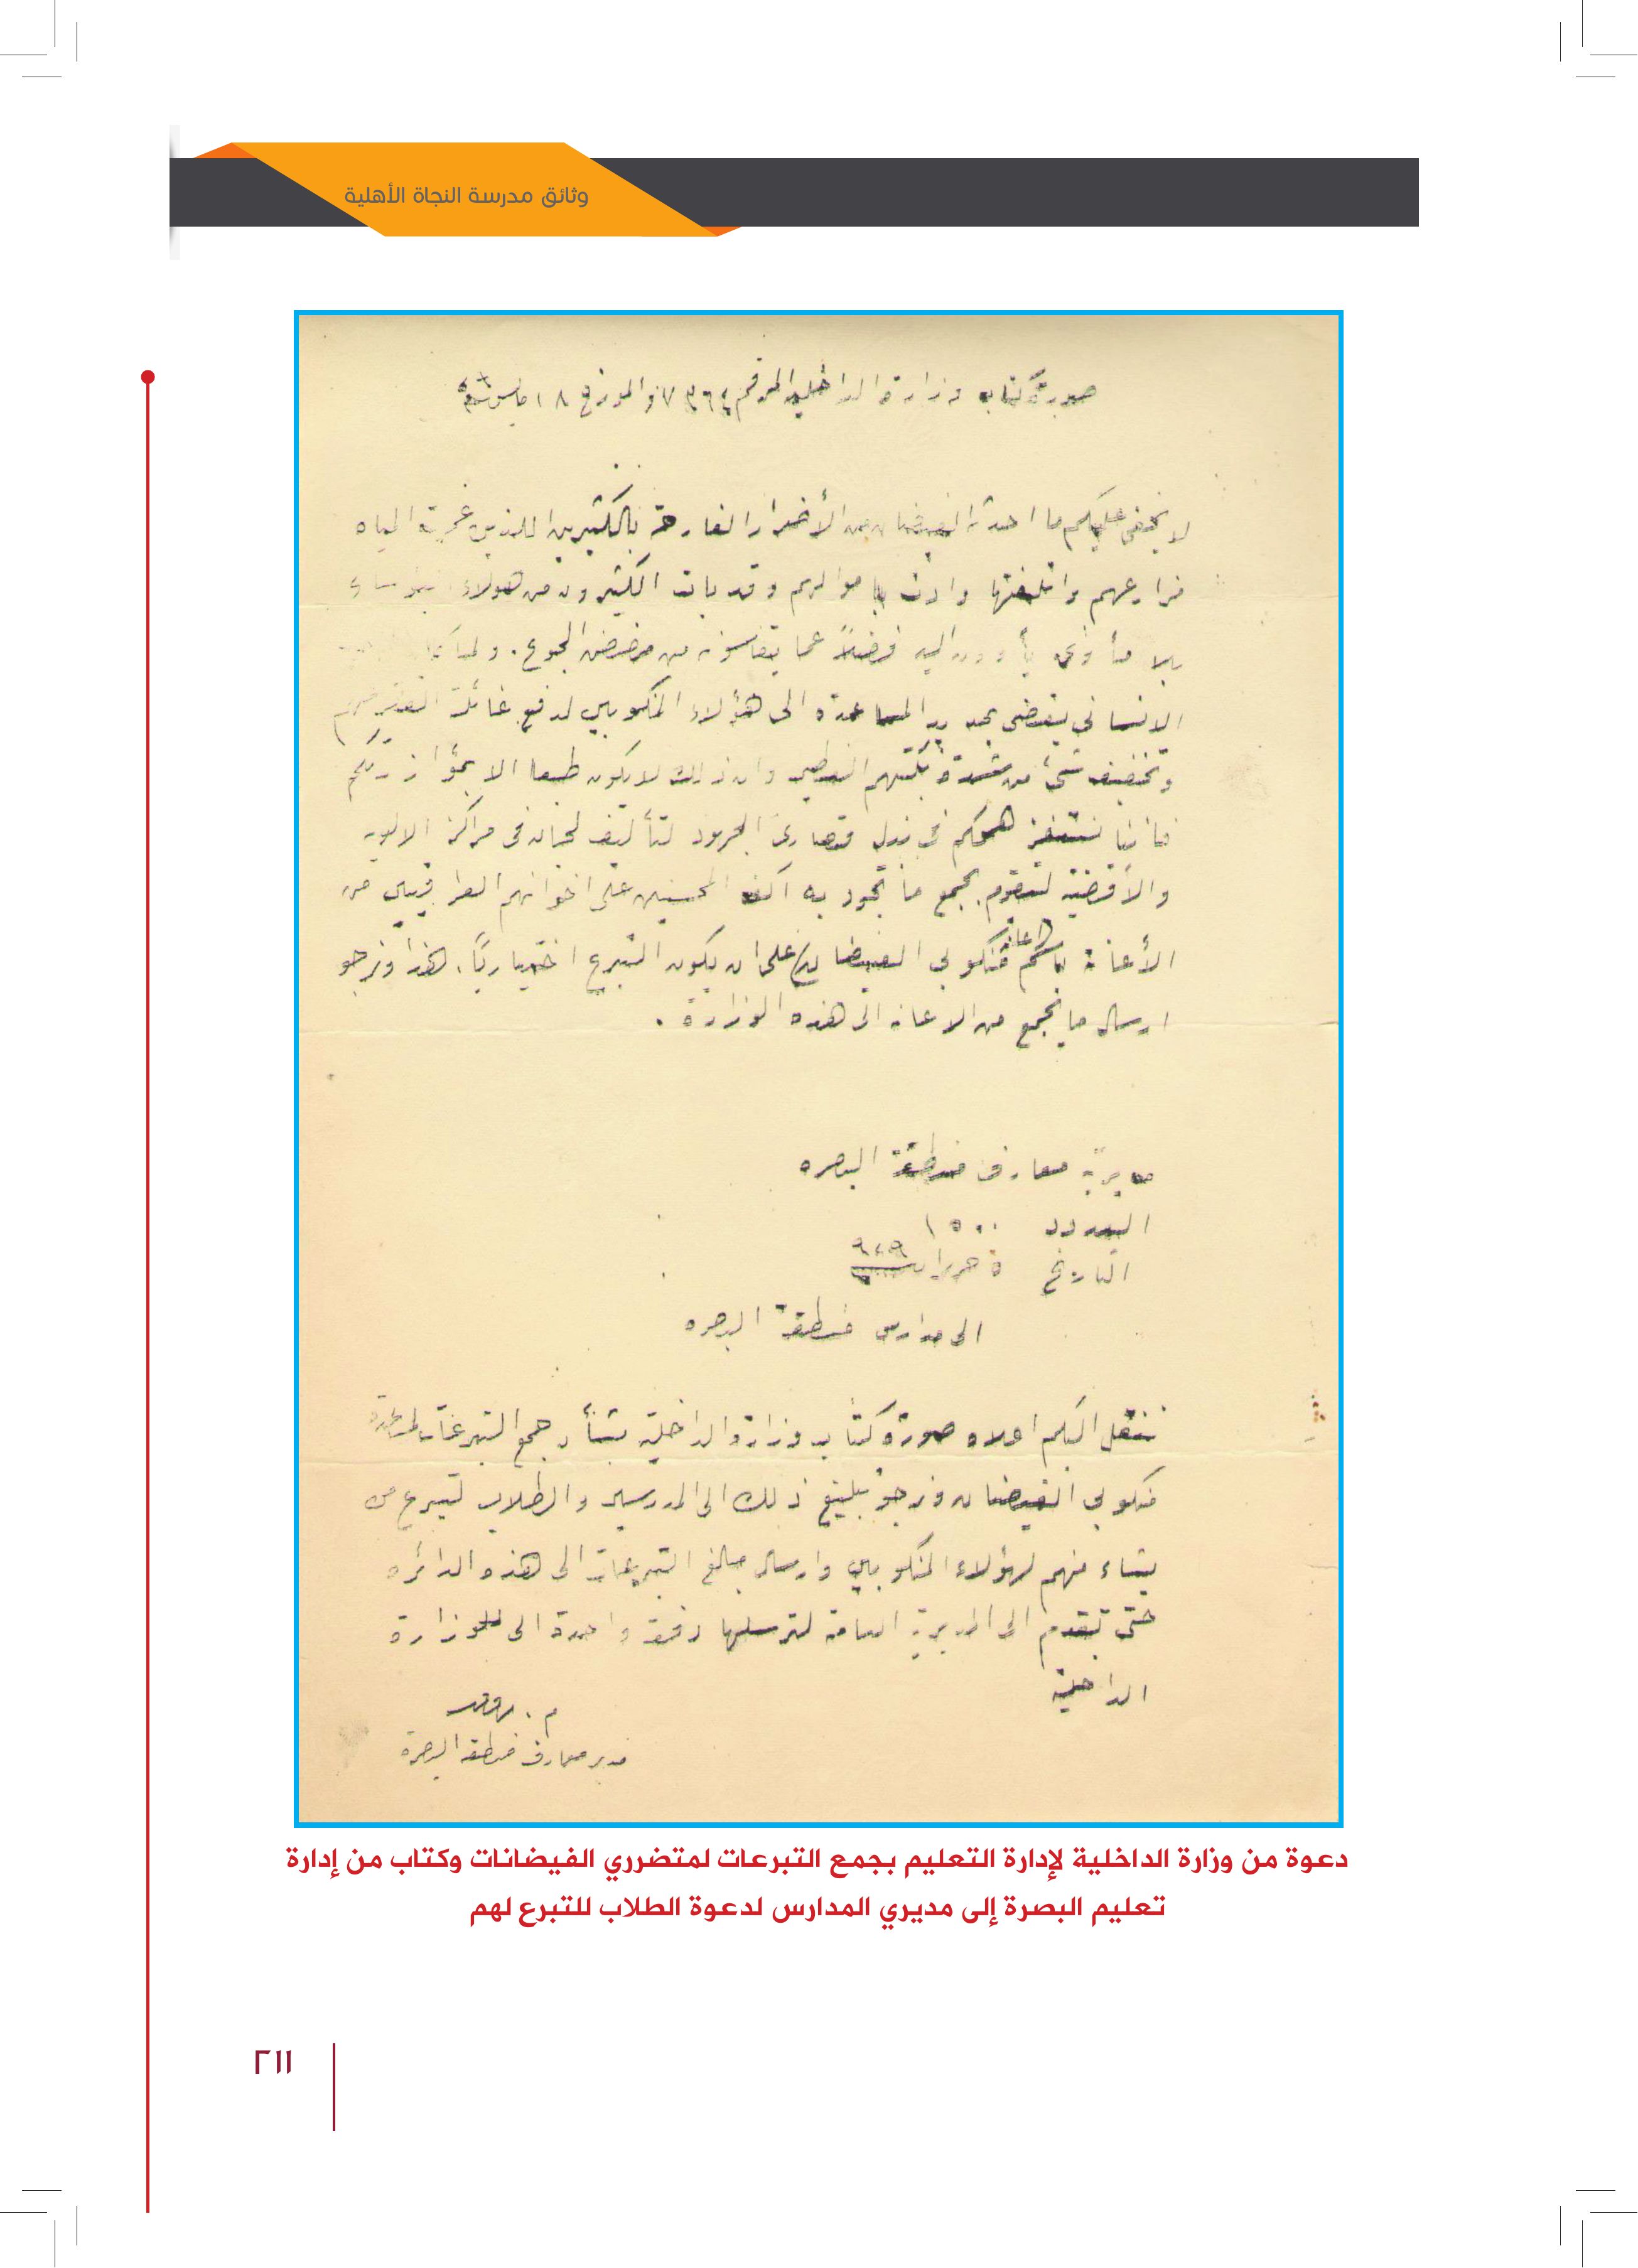 وثائق مدرسة النجاة الأهلية
صورة كتاب وزارة الداخلية المرقم ٧٣٦٤ والمورخ ١٨ مايس
لا يخفى عليكم ما احدثه الفيضان من الأضرار الفادحة بالكثيرين اللذين غمرت المياه
مزارعهم واتلفتها واودت باموالهم وقد بات الكثيرون من هولاء
بلا مأوى يأوون اليه فضلاً عما يقاسونه من مضض الجوع. ولما كان
الانساني يقضي بمد يد المساعدة الى هؤلاء المنكوبين لدفع غائلة الفقر عنهم
وتخفيف شئ من شدة نكبتهم العظمى وان ذلك لا يكون طبعا الا بمؤازرتكم
فاننا نستفز هممكم في بذل قصارى الجهود لتأليف لجان في مراكز الالوية
والأقضية لتقوم بجمع ما تجود به اكف المحسنين على اخوانهم العراقيين من
الأعانة باسم اعانة منكوبي الفيضان على ان يكون التبرع اختيارياً. هذا ونرجو
ارسال ما يجمع من الاعانه الى هذه الوزارة.
مديرية معارف منطقة البصره
العدد ١٥٠٠
التاريخ ٥ حزيران ٩٢٩
الى مدارس منطقة البصره
ننقل اليكم اعلاه صورة كتاب وزارة الداخلية بشأن جمع التبرعات لمساعدة
منكوبي الفيضان ونرجو تبليغ ذلك الى المدرسين والطلاب ليتبرع من
يشاء منهم لهؤلاء المنكوبين وارسال مبالغ التبرعات الى هذه الدائره
حتى تقدم الى المديرية العامة لترسلها دفعة واحدة الى للوزارة
الداخلية
م.
مدير معارف منطقة البصرة
دعوة من وزارة الداخلية لإدارة التعليم بجمع التبرعات لمتضرري الفيضانات وكتاب من إدارة
تعليم البصرة إلى مديري المدارس لدعوة الطلاب للتبرع لهم
٢١١